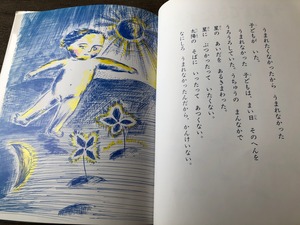 うまれたくなかったから うまれなかった
子どもが いた。
うまれなかった 子どもは、まい日 そのへんを
うろうろしていた。うちゅうの まんなかで
星の あいだを あるきまわった。
星に ぶつかったって いたくない。
太陽の そばに いったって あつくない。
なにしろ うまれなかったんだから、かんけいない。